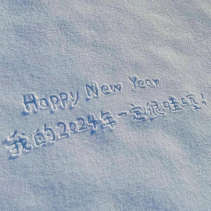 Happy New Year
我的2024年一定很哇塞!